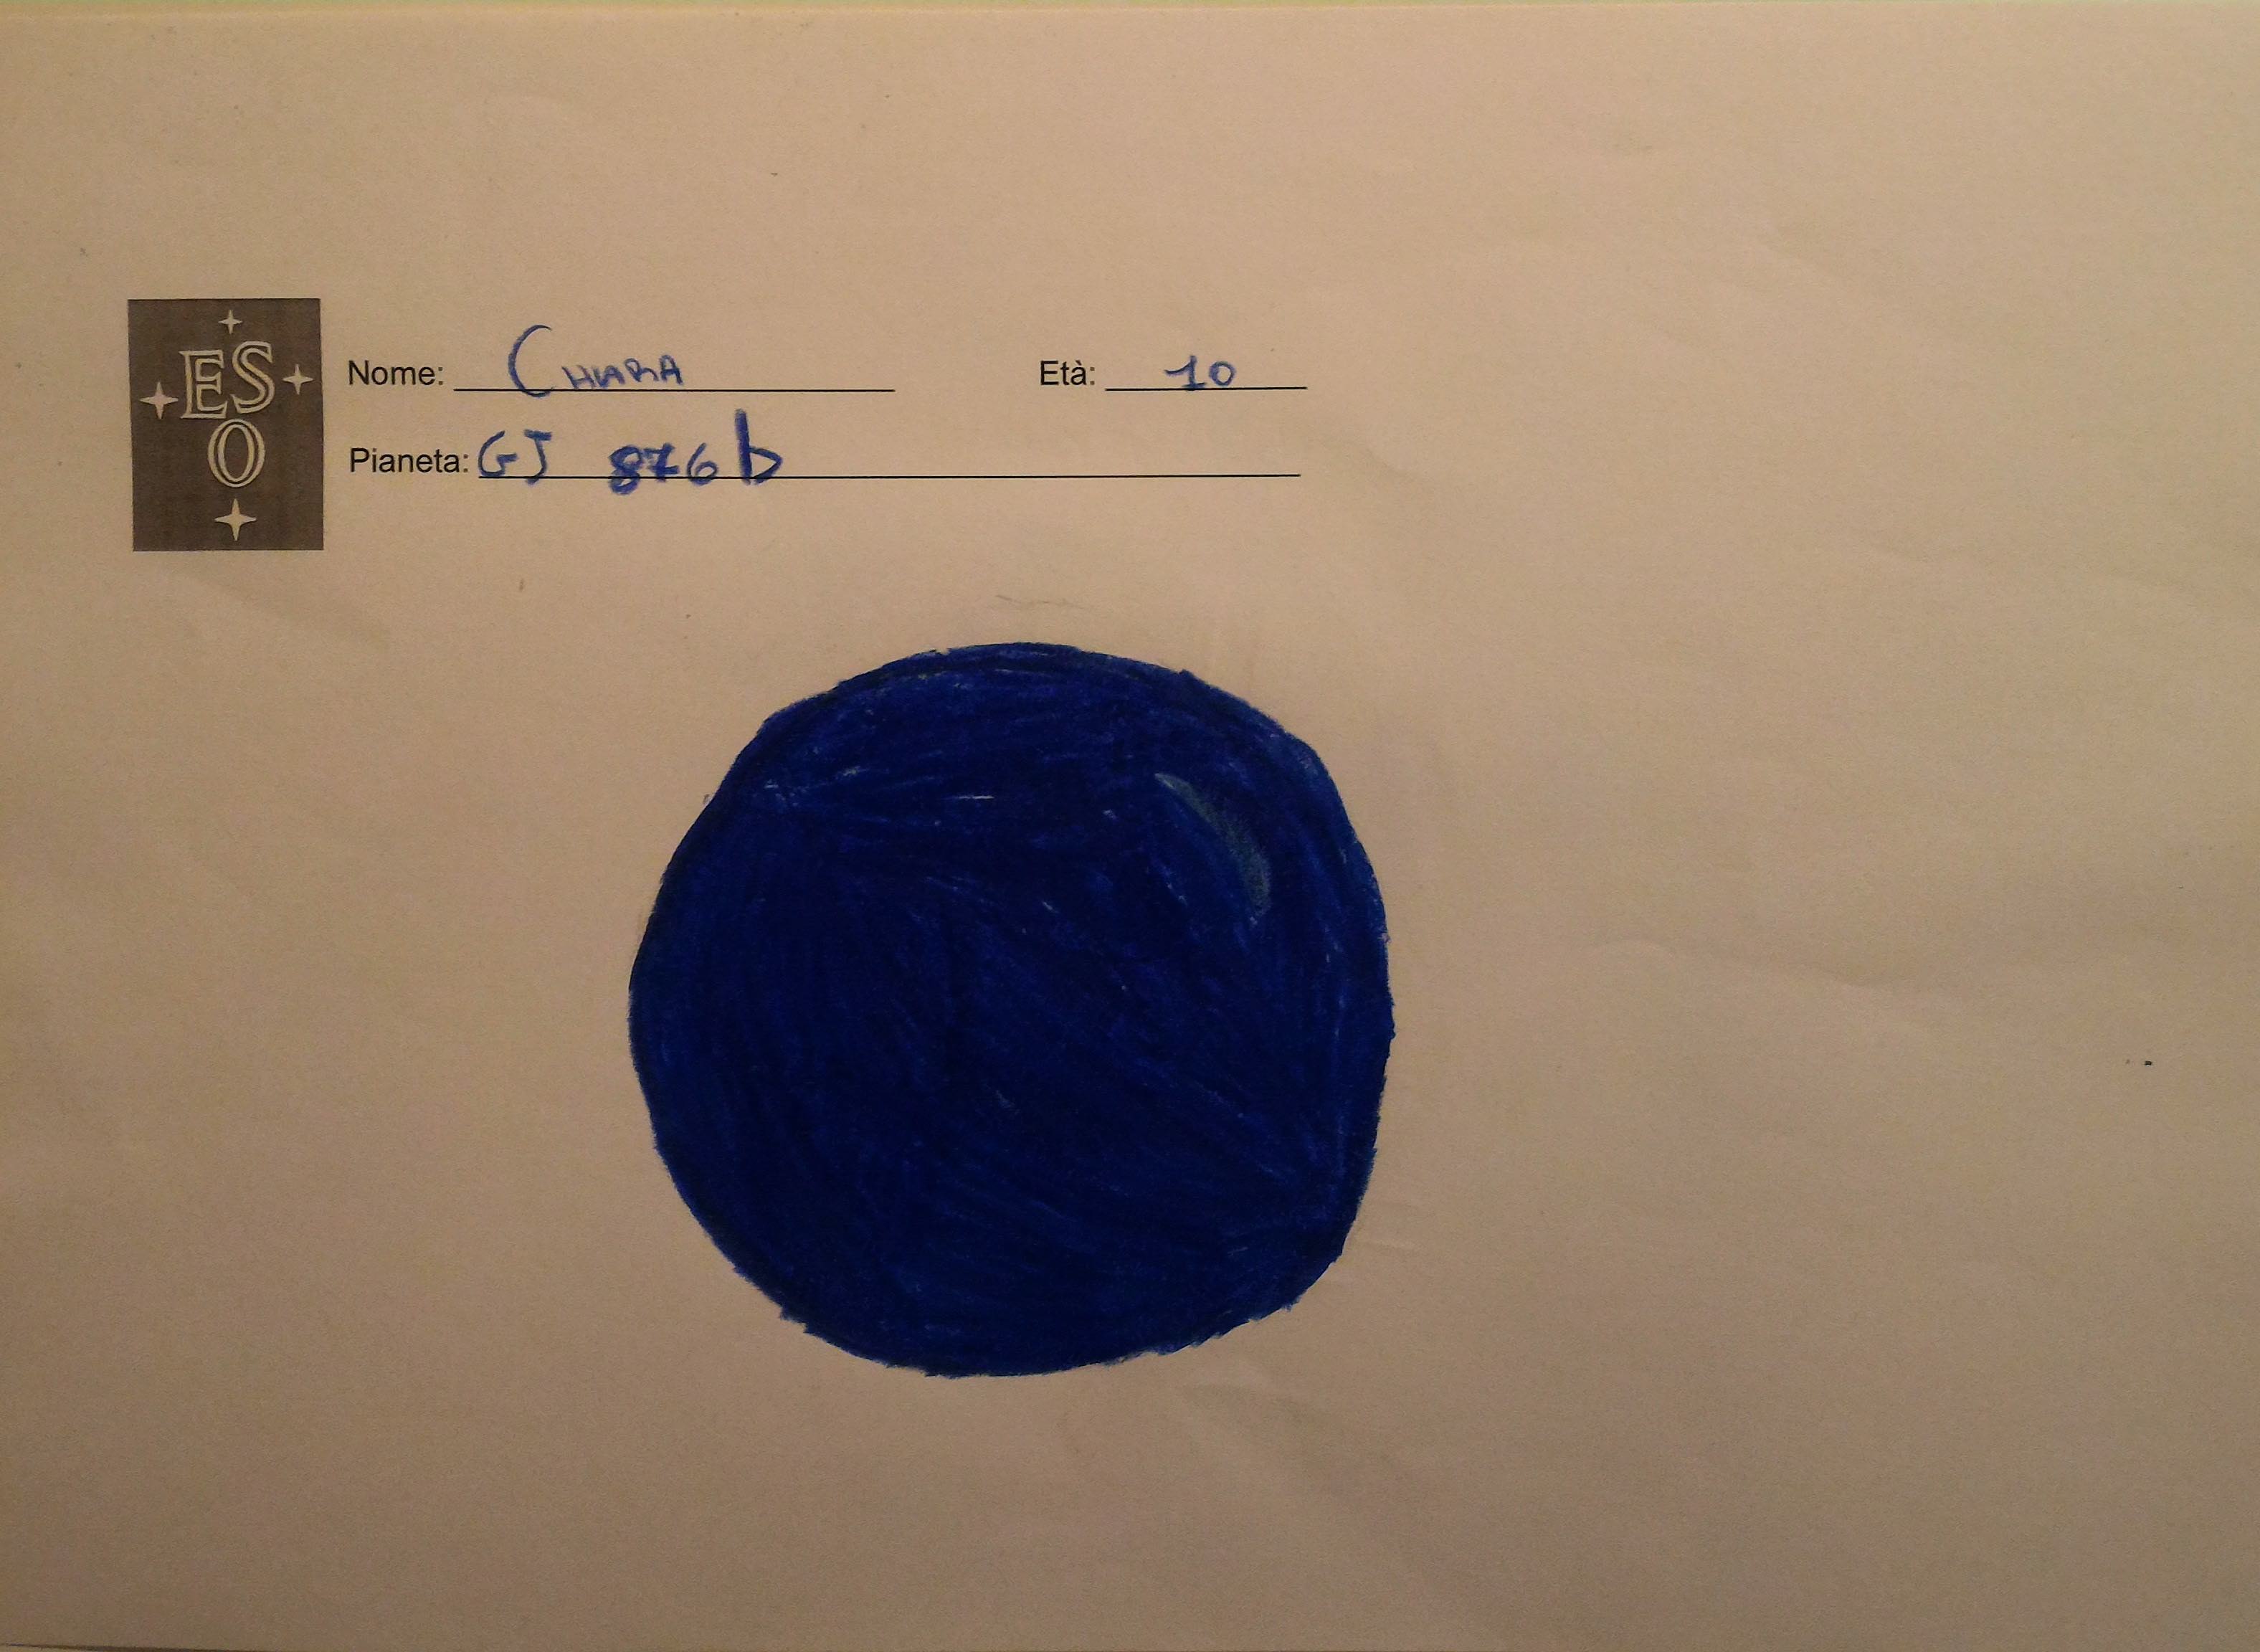 ES
O
Nome: CHIARA Età: 10
Pianeta: GJ 876 b